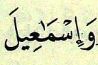 وَإِسْمَٰعِيلَ